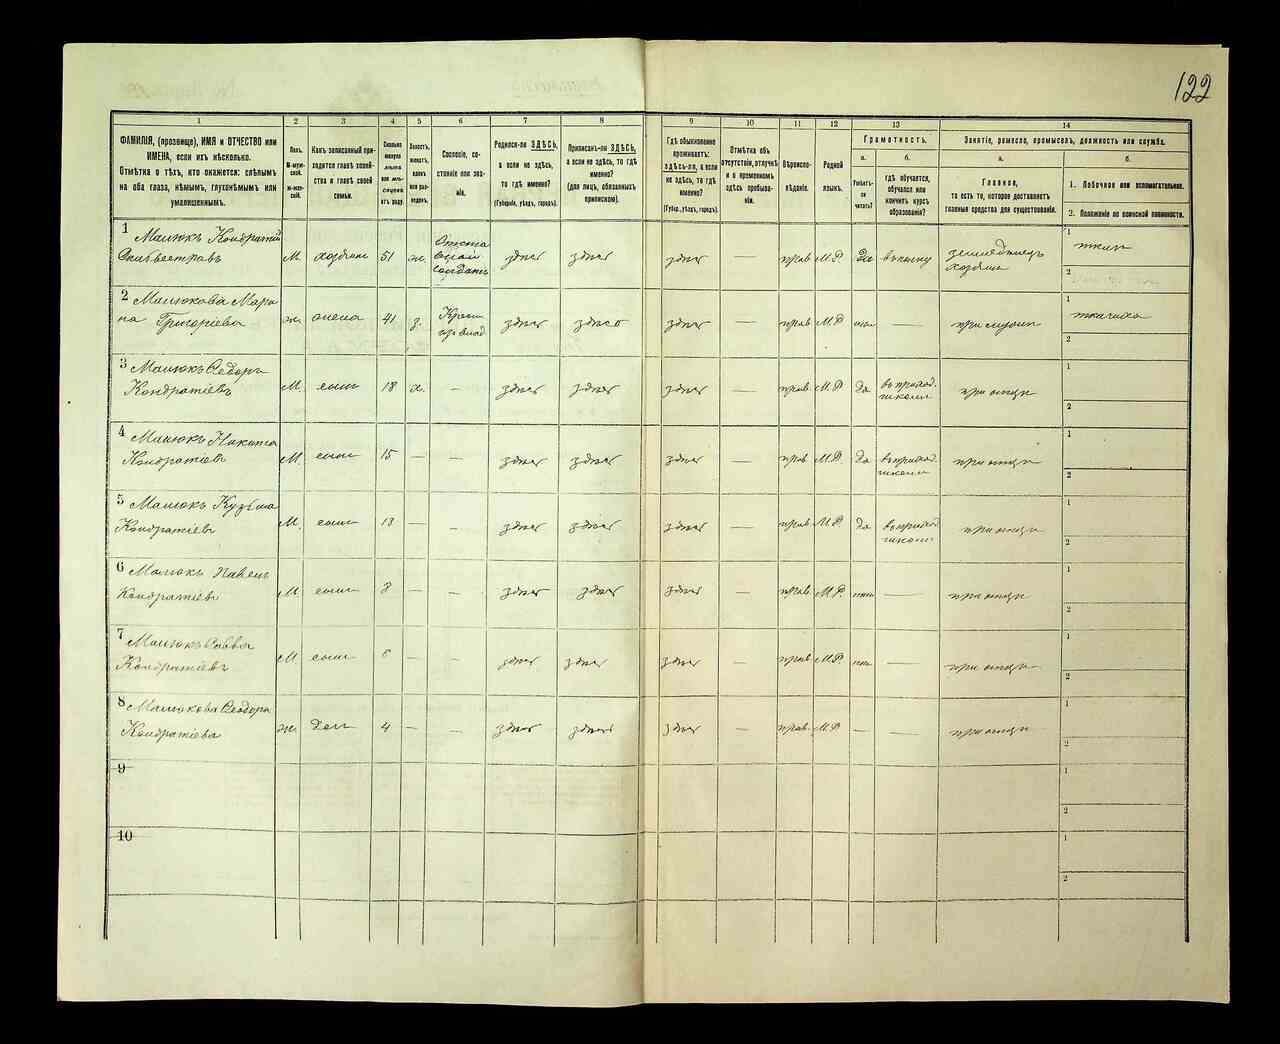 122
1 2 3 4 5 6 7 8 9 10 11 12 13 14
ФАМИЛІЯ, (прозвище), ИМЯ и ОТЧЕСТВО или
ИМЕНА, если ихъ нѣсколько.
Отмѣтка о тѣхъ, кто окажется: слѣпымъ
на оба глаза, нѣмымъ, глухонѣмымъ или
умалишеннымъ.
Полъ.
М-муж-
ской.
ж-жен-
скій.
Какъ записанный при-
ходится главѣ хозяй-
ства и главѣ своей
семьи.
Сколько
минуло
лѣтъ
или мѣ-
сяцевъ
отъ роду.
Холостъ,
женатъ,
вдовъ
или раз-
веденъ.
Сословіе, со-
стояніе или зва-
ніе.
Родился-ли ЗДѢСЬ,
а если не здѣсь,
то гдѣ именно?
(Губернія, уѣздъ, городъ).
Приписанъ-ли ЗДѢСЬ,
а если не здѣсь, то гдѣ
именно?
(для лицъ, обязанныхъ
припискою).
Гдѣ обыкновенно
проживаетъ:
здѣсь-ли, а если
не здѣсь, то гдѣ
именно?
(Губер., уѣздъ, городъ).
Отмѣтка объ
отсутствіи, отлучкѣ
и о временномъ
здѣсь пребыва-
ніи.
Вѣроиспо-
вѣданіе.
Родной
языкъ.
Грамотность.
а.
Умѣетъ-
ли
читать?
б.
гдѣ обучается,
обучался или
кончилъ курсъ
образованія?
Занятіе, ремесло, промыселъ, должность или служба.
а.
Главное,
то есть то, которое доставляетъ
главныя средства для существованія.
б.
1. Побочное или вспомогательное.
2. Положеніе по воинской повинности.
1 Малюкъ Кондратій М. хозяинъ 51 ж. Отста здѣсь здѣсь здѣсь — прав М.Р да въ полку земледѣлецъ 1 ткачъ
вной солдатъ хозяинъ 2
2 Малюкова Мари ж. жена 41 з. здѣсь здѣсь здѣсь — прав М.Р нѣтъ — при мужѣ 1 ткачиха
на Григоріева 2
3 Малюкъ Ѳедоръ М. сынъ 18 х. — здѣсь здѣсь здѣсь — прав. М.Р да въ приход. при отцѣ 1
Кондратіевъ школѣ 2
4 Малюкъ Никита М. сынъ 15 — — здѣсь здѣсь здѣсь — прав М.Р. да въ приход. при отцѣ 1
Кондратіевъ школѣ 2
5 Малюкъ Кузьма М. сынъ 13 — здѣсь здѣсь здѣсь — прав. М.Р да въ приход при отцѣ 1
Кондратіевъ школѣ 2
6 Малюкъ Павелъ М. сынъ 8 — — здѣсь здѣсь здѣсь — прав. М.Р. нѣтъ — при отцѣ 1
Кондратіевъ 2
7 Малюкъ Савва М. сынъ 6 — — здѣсь здѣсь здѣсь — прав М.Р нѣтъ — при отцѣ 1
Кондратіевъ 2
8 Малюкова Ѳеодора ж. дочь 4 — — здѣсь здѣсь здѣсь — прав. М.Р — — при отцѣ 1
Кондратіева 2
9 1
2
10 1
2